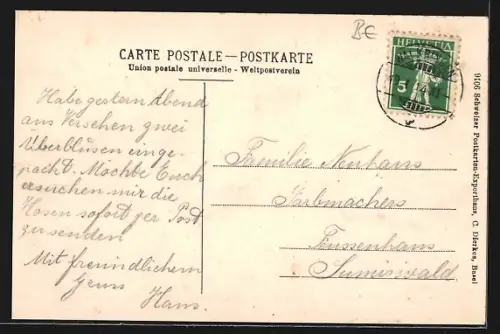 BE
CARTE POSTALE—POSTKARTE
Union postale universelle - Weltpostverein
HELVETIA
5
Habe gestern Abend
aus Versehen zwei
Überblusen einge-
packt. Möchte Euch
ersuchen mir die
Hosen sofort per Post
zu senden
Mit freundlichem
Gruss
Hans.
Familie Neuhaus
Farbmachers
Fussenhaus
Sumiswald
9106 Schweizer Postkarten-Exporthaus, C. Dierkes, Basel